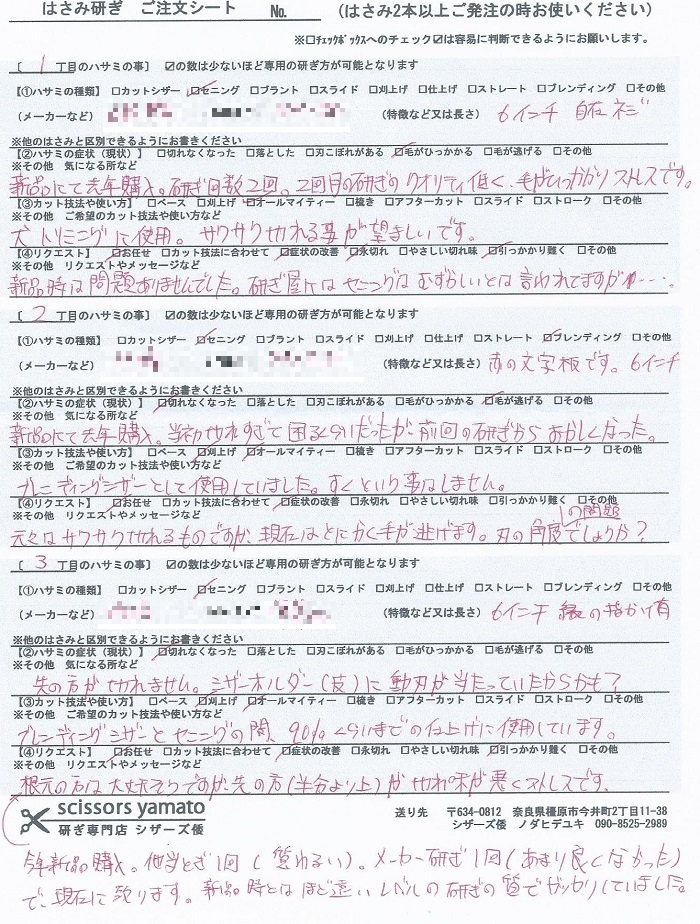 はさみ研ぎ ご注文シート No. (はさみ2本以上ご発注の時お使いください)
※□ﾁｪｯｸﾎﾞｯｸｽへのチェック☑は容易に判断できるようにお願いします。
〔 1 丁目のハサミの事〕 ☑の数は少ないほど専用の研ぎ方が可能となります
【①ハサミの種類】 □カットシザー ☑セニング □ブラント □スライド □刈上げ □仕上げ □ストレート □ブレンディング □その他
(メーカーなど) (特徴など又は長さ) 6インチ 自在ネジ
※他のはさみと区別できるようにお書きください
【②ハサミの症状(現状)】 □切れなくなった □落とした □刃こぼれがある ☑毛がひっかかる □毛が逃げる □その他
※その他 気になる所など
新品にて去年購入。研ぎ回数2回。2回目の研ぎのクオリティ低く、毛がひっかかりストレスです。
【③カット技法や使い方】 □ベース □刈上げ ☑オールマイティー □梳き □アフターカット □スライド □ストローク □その他
※その他 ご希望のカット技法や使い方など
犬トリミングに使用。サクサク切れる事が望ましいです。
【④リクエスト】 ☑お任せ □カット技法に合わせて ☑症状の改善 ☑永切れ □やさしい切れ味 ☑引っかかり難く □その他
※その他 リクエストやメッセージなど
新品時は問題ありませんでした。研ぎ屋にはセニングはむずかしいとは言われてますが・・・。
〔 2 丁目のハサミの事〕 ☑の数は少ないほど専用の研ぎ方が可能となります
【①ハサミの種類】 □カットシザー ☑セニング □ブラント □スライド □刈上げ □仕上げ □ストレート ☑ブレンディング □その他
(メーカーなど) (特徴など又は長さ) 赤の文字板です。6インチ
※他のはさみと区別できるようにお書きください
【②ハサミの症状(現状)】 ☑切れなくなった □落とした □刃こぼれがある □毛がひっかかる ☑毛が逃げる □その他
※その他 気になる所など
新品にて去年購入。当初切れすぎて困るくらいだったが、前回の研ぎからおかしくなった。
【③カット技法や使い方】 □ベース ☑刈上げ ☑オールマイティー □梳き □アフターカット □スライド □ストローク □その他
※その他 ご希望のカット技法や使い方など
ブレンディングシザーとして使用していました。すくという事はしません。
【④リクエスト】 ☑お任せ □カット技法に合わせて ☑症状の改善 □永切れ □やさしい切れ味 ☑引っかかり難く □その他
※その他 リクエストやメッセージなど
元々はサクサク切れるものですが、現在はとにかく毛が逃げます。刃の角度の問題でしょうか?
〔 3 丁目のハサミの事〕 ☑の数は少ないほど専用の研ぎ方が可能となります
【①ハサミの種類】 □カットシザー ☑セニング □ブラント □スライド □刈上げ □仕上げ □ストレート □ブレンディング □その他
(メーカーなど) (特徴など又は長さ) 6インチ の指かけ有
※他のはさみと区別できるようにお書きください
【②ハサミの症状(現状)】 ☑切れなくなった □落とした □刃こぼれがある □毛がひっかかる □毛が逃げる □その他
※その他 気になる所など
先の方が切れません。シザーホルダー(皮)に動刃が当たっていたからかも?
【③カット技法や使い方】 □ベース □刈上げ ☑オールマイティー □梳き □アフターカット □スライド □ストローク □その他
※その他 ご希望のカット技法や使い方など
ブレンディングシザーとセニングの間、90%くらいまでの仕上げに使用しています。
【④リクエスト】 ☑お任せ □カット技法に合わせて ☑症状の改善 □永切れ □やさしい切れ味 ☑引っかかり難く □その他
※その他 リクエストやメッセージなど
根元の方は大丈夫そうですが、先の方(半分より上)が切れ味が悪くストレスです。
scissors yamato
研ぎ専門店 シザーズ倭
送り先 〒634-0812 奈良県橿原市今井町2丁目11-38
シザーズ倭 ノダヒデユキ 090-8525-2989
今年新品購入。他当とぎ1回(質わるい)。メーカー研ぎ1回(あまり良くなかった)
で、現在に致ります。新品時とはほど遠いレベルの研ぎの質でガッカリしていました。